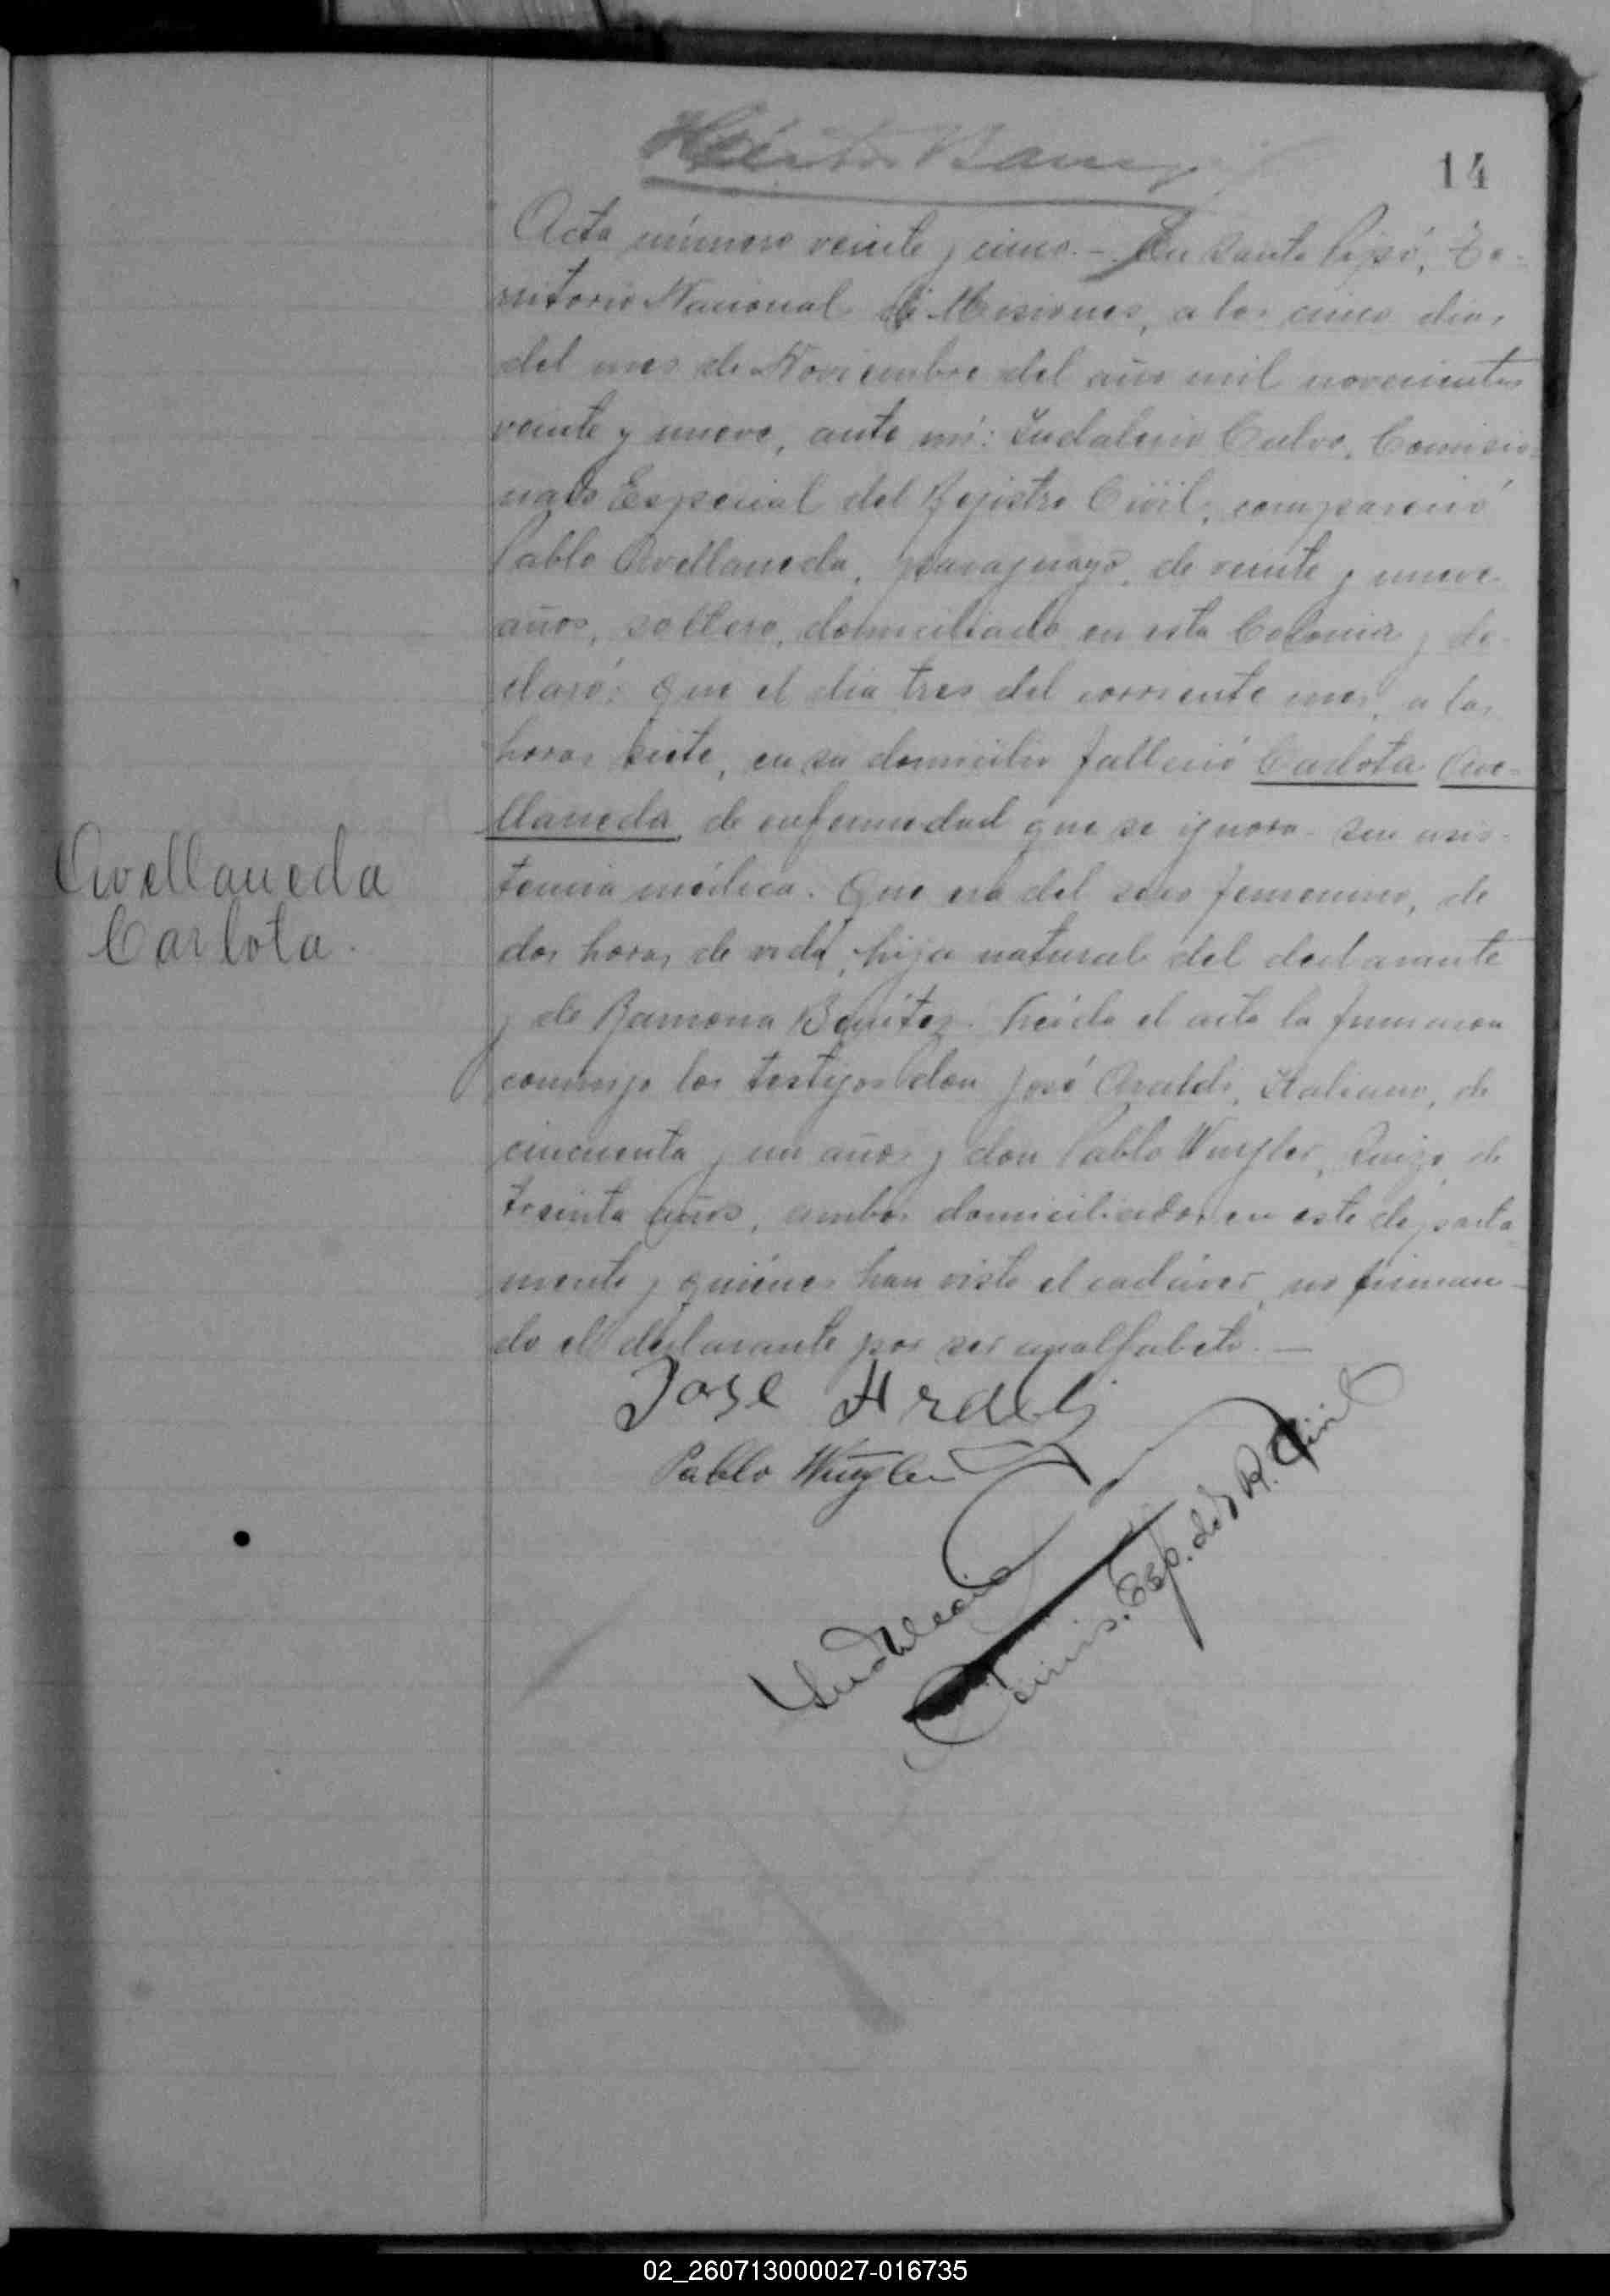 14
Acta número veinte y cinco.- En Santo Pipó, Te-
rritorio Nacional de Misiones, a los cinco días
del mes de Noviembre del año mil novecientos
veinte y nueve, ante mí: Indalecio Calvo, Comisio-
nado Especial del Registro Civil, compareció
Pablo Avellaneda, paraguayo, de veinte y nueve
años, soltero, domiciliado en esta Colonia y de-
claró: Que el día tres del corriente mes, a las
horas siete, en su domicilio falleció Carlota Ave-
llaneda de enfermedad que se ignora - sin asis-
tencia médica. Que era del sexo femenino, de
Avellaneda
Carlota.
dos horas de vida, hija natural del declarante
y de Ramona Benítez. Leída el acta la firmaron
conmigo los testigos don José Araldi, Italiano, de
cincuenta y un años y don Pablo Wugler, Suizo, de
treinta años, ambos domiciliados en este departa
mento y quiénes han visto el cadáver, no firman-
do el declarante por ser analfabeto.—
Jose
Pablo Wugler
Indalecio
Comis. Esp. del R. Civil
02_260713000027-016735